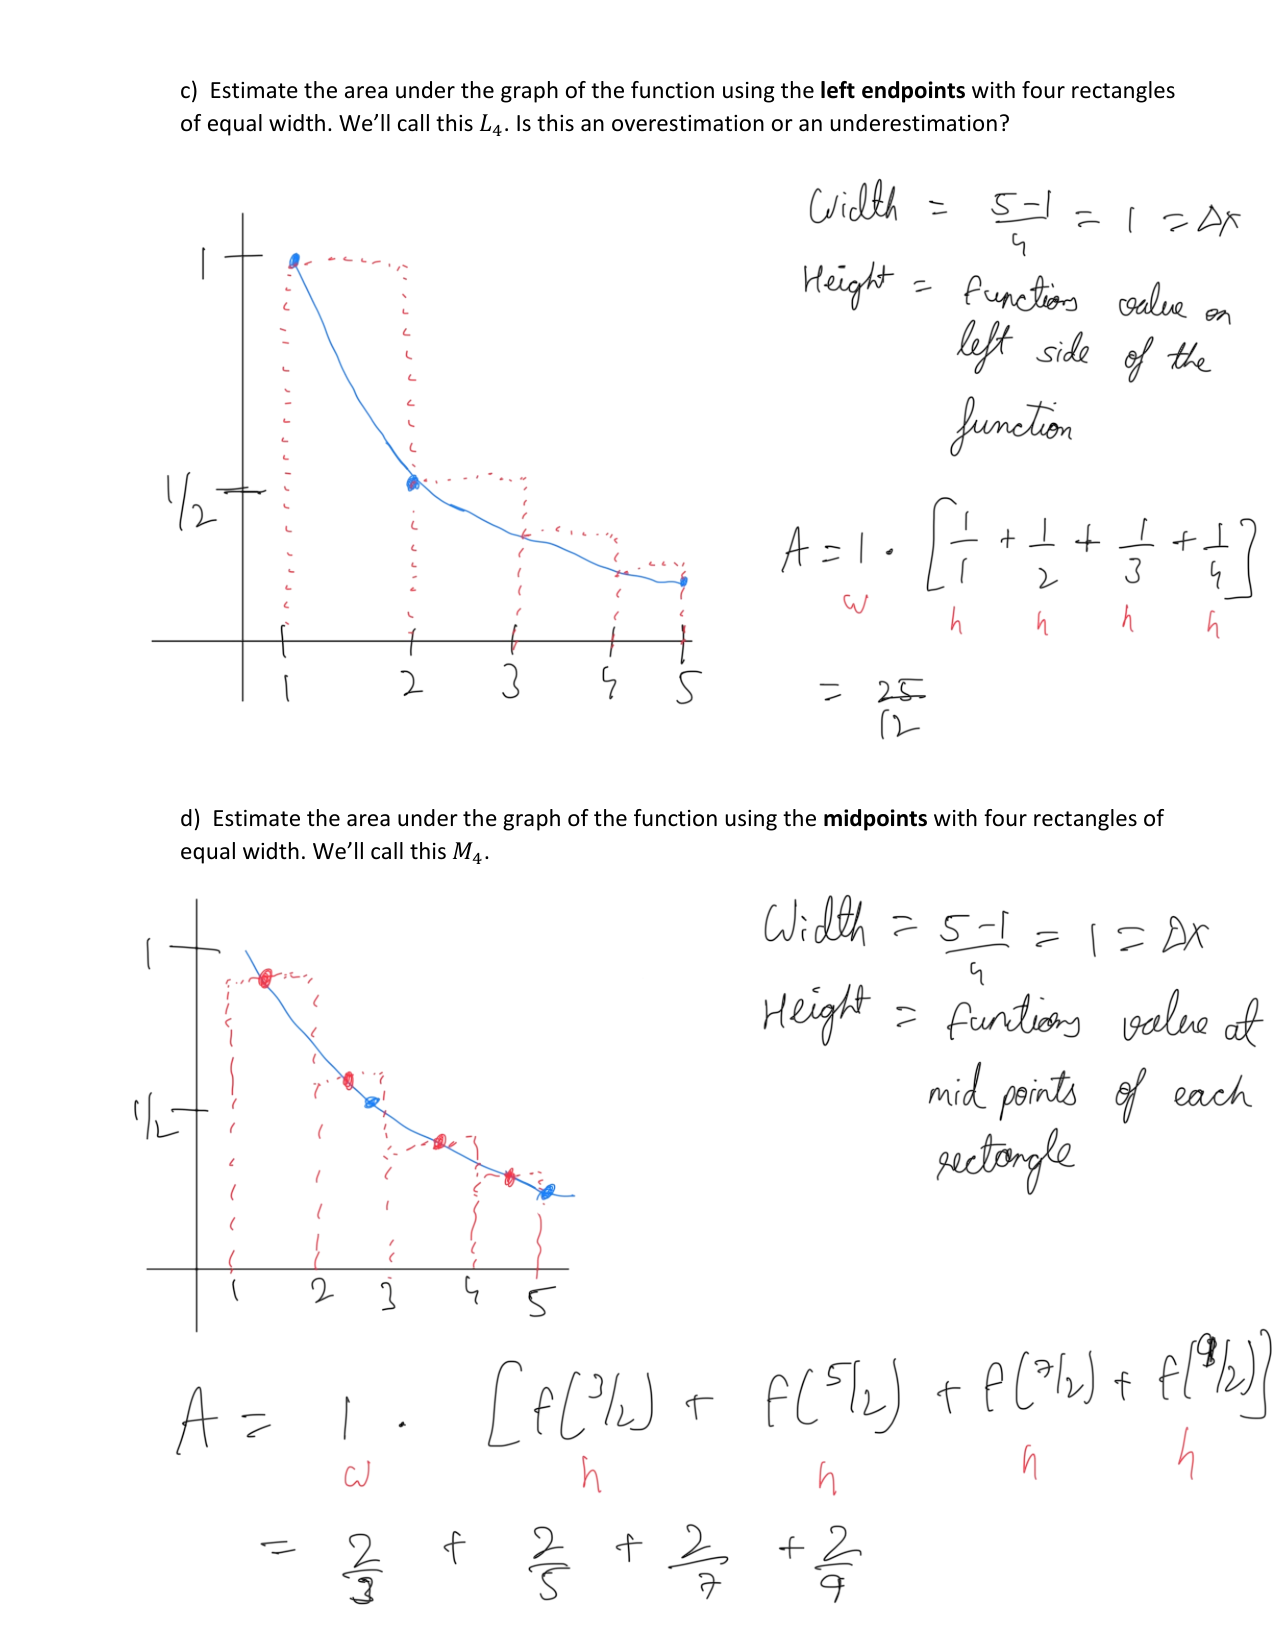 c) Estimate the area under the graph of the function using the left endpoints with four rectangles
of equal width. We'll call this L₄. Is this an overestimation or an underestimation?
Width = (5-1)/4 = 1 = Δx
Height = function value on
left side of the
function
1
1/2
A = 1 · [1/1 + 1/2 + 1/3 + 1/4]
w h h h h
= 25/12
1 2 3 4 5
d) Estimate the area under the graph of the function using the midpoints with four rectangles of
equal width. We'll call this M₄.
Width = (5-1)/4 = 1 = Δx
Height = function value at
mid points of each
rectangle
1
1/2
1 2 3 4 5
A = 1 · [f(3/2) + f(5/2) + f(7/2) + f(9/2)]
w h h h h
= 2/3 + 2/5 + 2/7 + 2/9